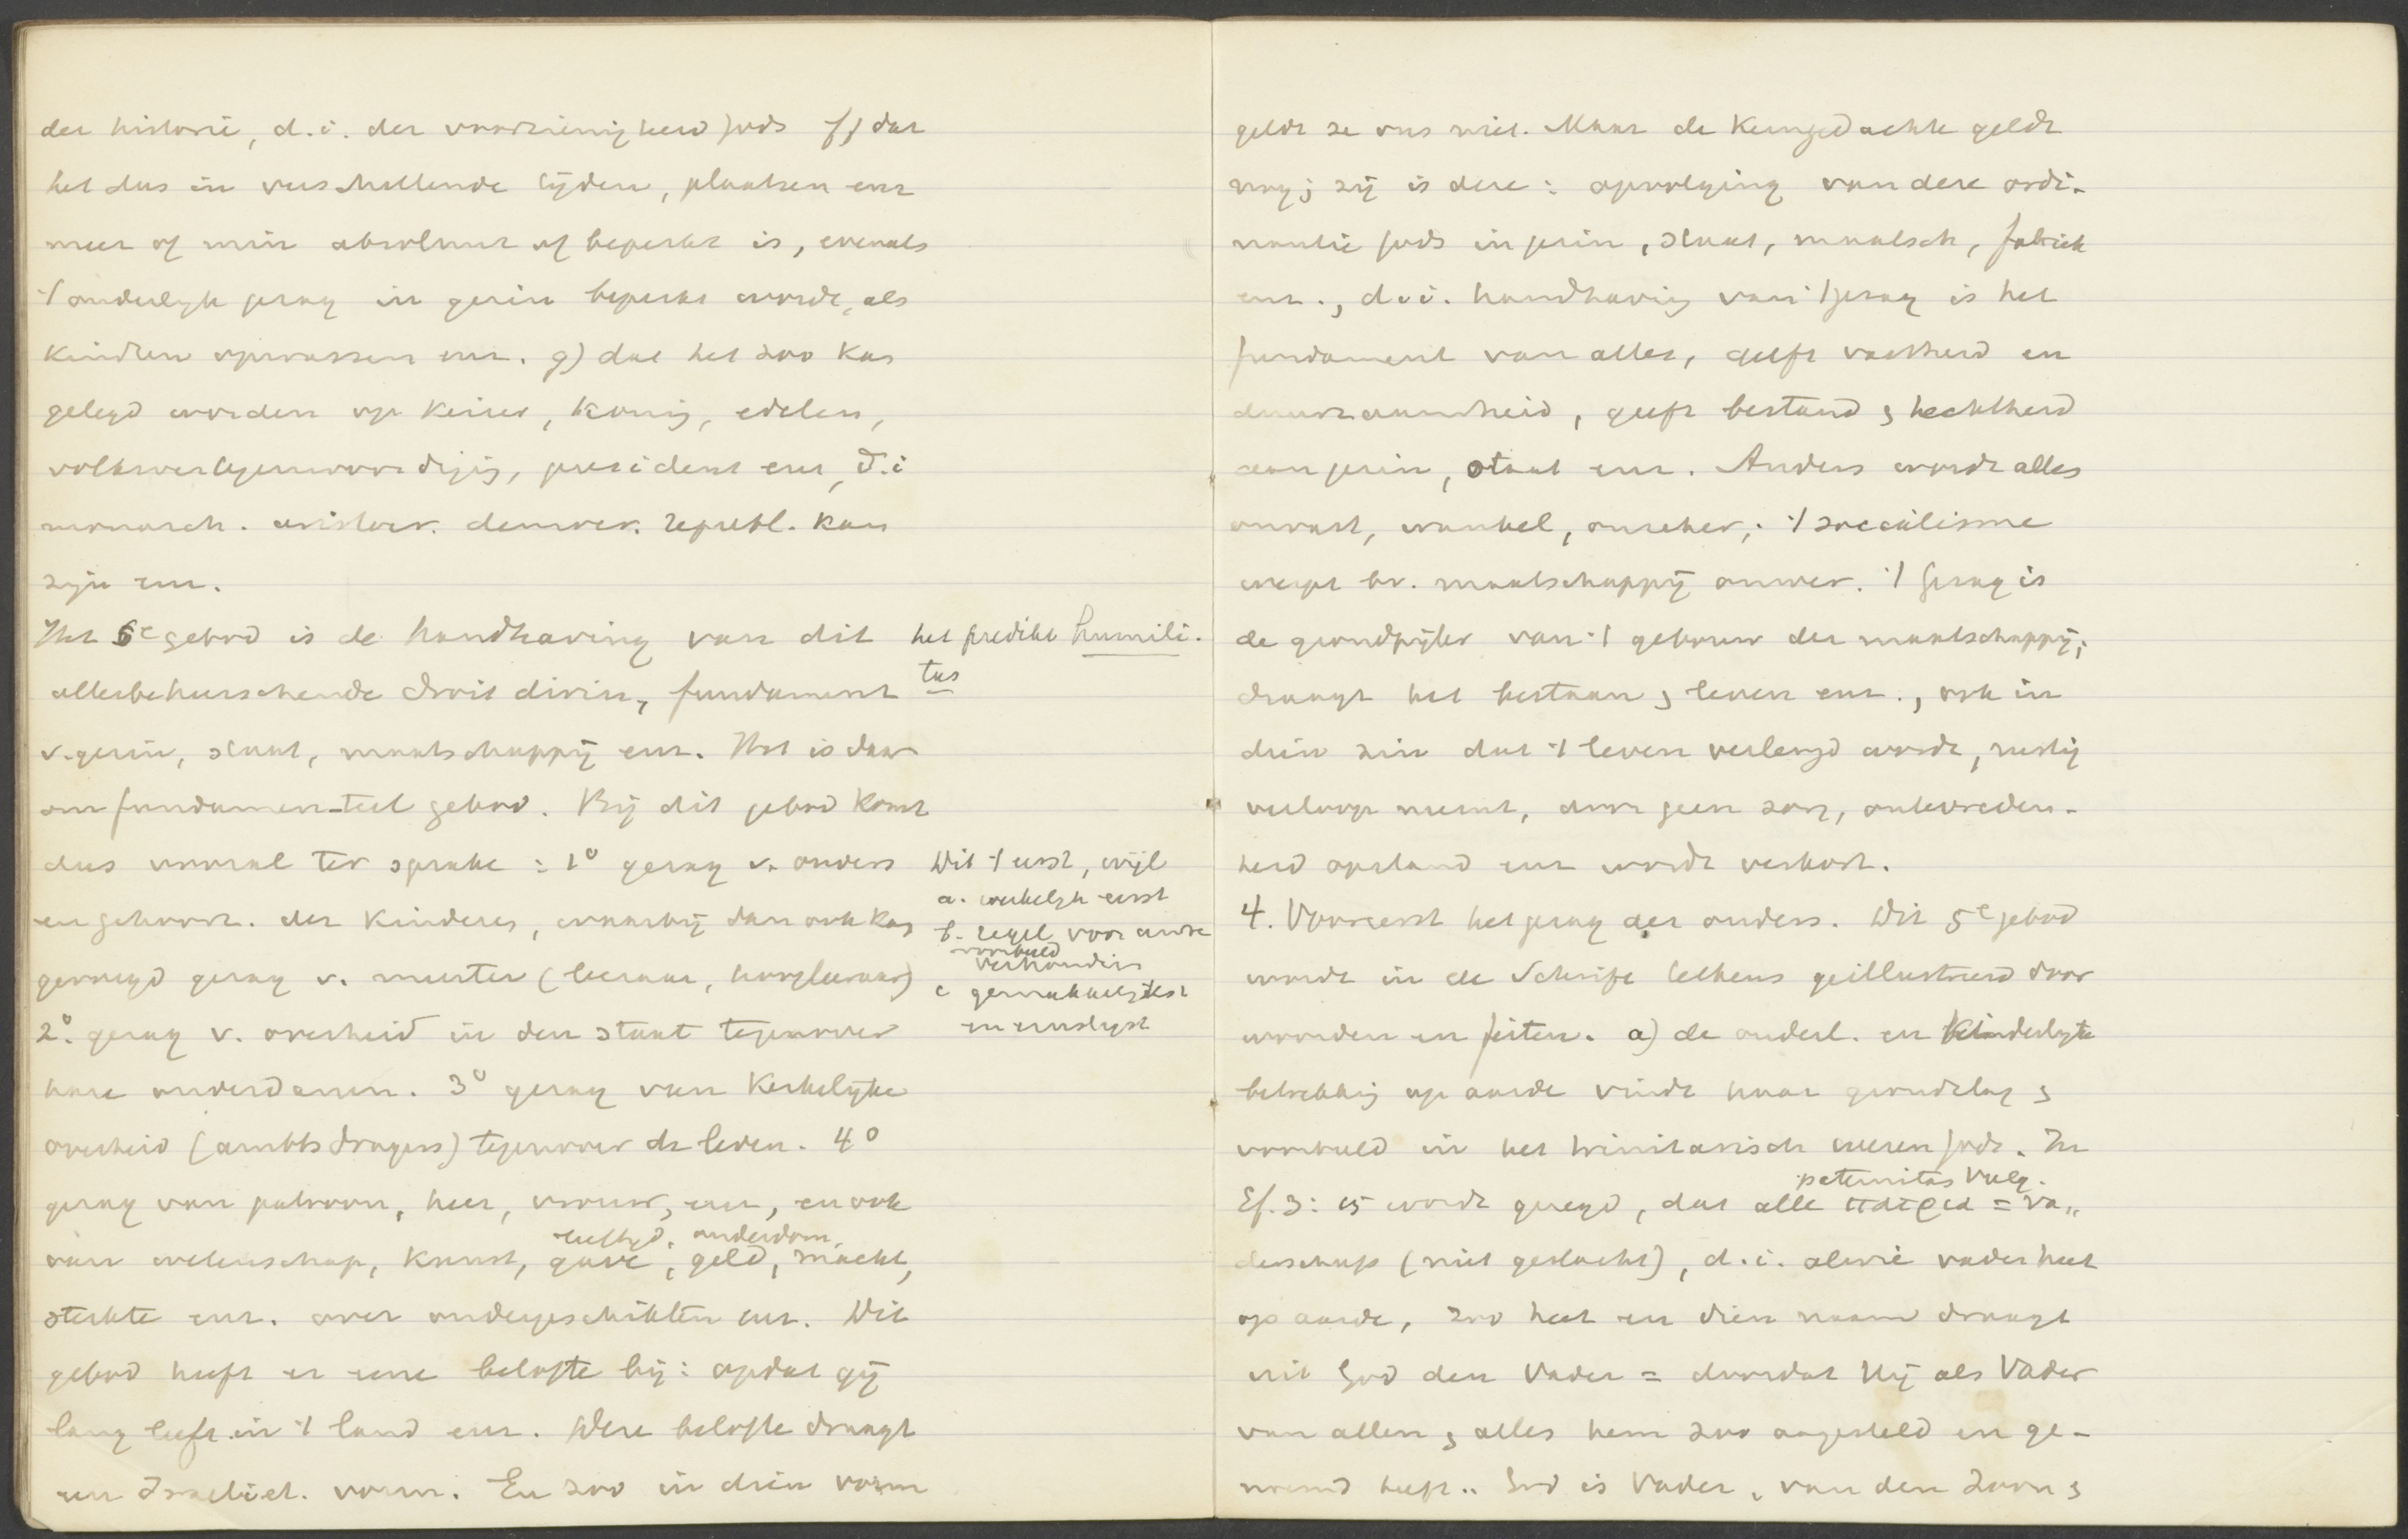 der historie, d.i. der voorzienigheid Gods f) dat
het dus in verschillende tijden, plaatsen enz
meer of min absoluut of beperkt is, evenals
't ouderlijk gezag in gezin beperkt wordt, als
kindren opwassen enz. g) dat het zoo kan
gelegd worden op keizer, koning, edelen,
volksvertegenwoordigig, president enz, d.i
monarch. aristocr. democr. republ. kan
zijn enz.
Het 5e gebod is de handhaving van dit
allesbeheerschende droit divin, fundament
v. gezin, staat, maatschappij enz. Het is daar
om fundamenteel gebod. Bij dit gebod komt
dus vooral ter sprake: 1° gezag v. ouders
en gehoorz. der kinderen, waarbij dan ook kan
gevoegd gezag v. meester (leeraar, hoogleeraar)
2°. gezag v. overheid in den staat tegenover
hare onderdanen. 3° gezag van kerkelijke
overheid (ambtsdragers) tegenover de leden. 4°
gezag van patroon, heer, vrouw, enz, en ook
leeftijd. ouderdom,
van wetenschap, kunst, gave, geld, macht,
sterkte enz. over ondergeschikten enz. Dit
gebod heeft er eene belofte bij: opdat gij
lang leeft in 't land enz. Deze belofte draagt
een Israeliet. vorm. En zoo in dien vorm
het predikt humili-
tas
Dit 't eerst, wijl
a. werkelijk eerst
b. regel voor andre
voorbeeld
verhoudin
c gemakkelijkst
en innigst
geldt ze ons niet. Maar de kerngedachte geldt
nog; zij is deze: opvolging van deze ordi-
nantie Gods in gezin, staat, maatsch, fabriek
enz., d.i. handhaving van 't gezag is het
fundament van alles, geeft vastheid en
duurzaamheid, geeft bestand & hechtheid
aan gezin, staat enz. Anders wordt alles
onvast, wankel, onzeker; 't socialisme
werpt bv. maatschappij omver. 't Gezag is
de grondpijler van 't gebouw der maatschappij;
draagt het bestaan & leven enz., ook in
dien zin dat 't leven verlengd wordt, rustig
verloop neemt, door geen zorg, ontevreden-
heid opstand enz wordt verkort.
4. Vooreerst het gezag der ouders. Dit 5e gebod
wordt in de Schrift telkens geillustreerd door
woorden en feiten. a) de ouderl. en kinderlijke
betrekking op aarde vindt haar grondslag &
voorbeeld in het trinitarisch wezen Gods. In
paternitas Vulg.
Ef. 3:15 wordt gezegd, dat alle πατρια = va„
derschap (niet geslacht), d.i. alwie vader heet
op aarde, zoo heet en dien naam draagt
uit God den Vader = doordat Hij als Vader
van allen & alles hem zoo aangesteld en ge-
noemd heeft.. God is Vader, van den Zoon &